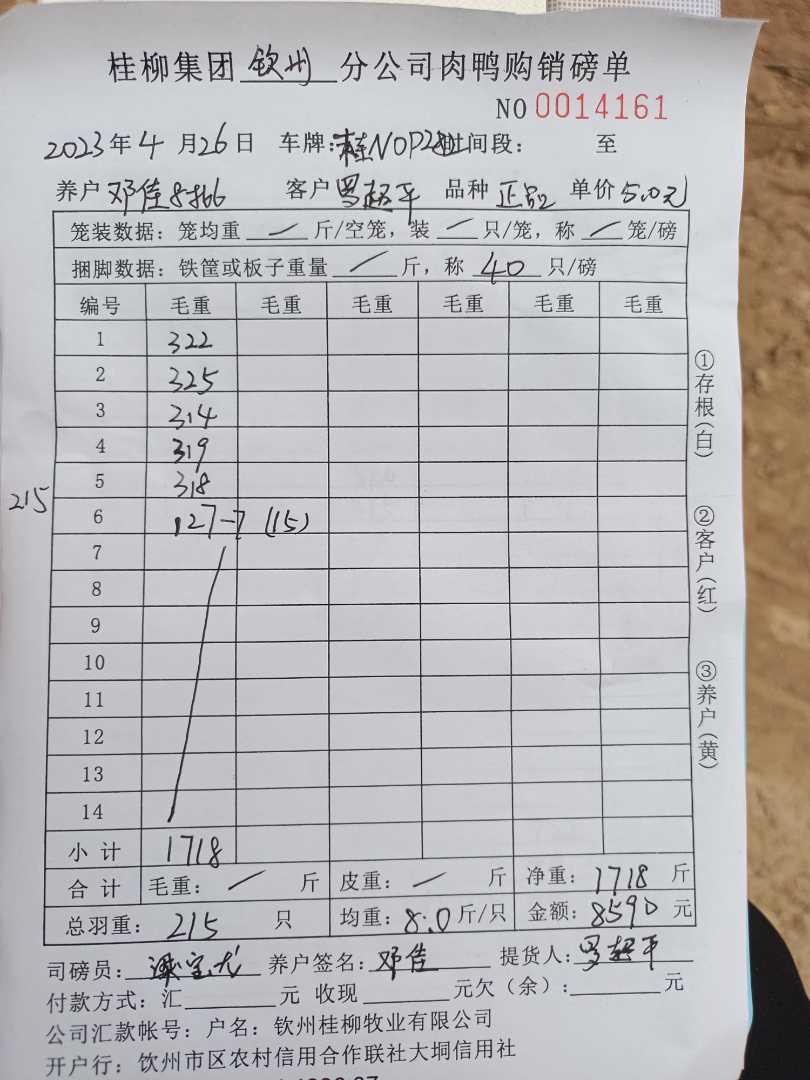 桂柳集团 钦州 分公司肉鸭购销磅单
NO 0014161
2023年4月26日 车牌：桂N0P282 时间段： 至
养户 邓佳 客户 罗超平 品种 正品2 单价 5.0元
笼装数据：笼均重 / 斤/空笼，装 / 只/笼，称 / 笼/磅
捆脚数据：铁筐或板子重量 / 斤，称 40 只/磅
编号 毛重 毛重 毛重 毛重 毛重 毛重
1 322
2 325
3 314
4 319
5 318
215
6 127-7 (15)
7
8
9
10
11
12
13
14
小计 1718
合计 毛重： / 斤 皮重： / 斤 净重：1718 斤
总羽重：215 只 均重：8.0斤/只 金额：8590 元
司磅员： 养户签名：邓佳 提货人：罗超平
付款方式：汇 元 收现 元欠（余）： 元
公司汇款帐号：户名：钦州桂柳牧业有限公司
开户行：钦州市区农村信用合作联社大垌信用社
①存根(白)
②客户(红)
③养户(黄)